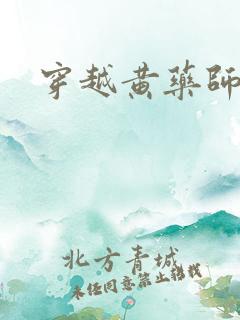 穿越黄药师
北方青城
未经同意禁止转载